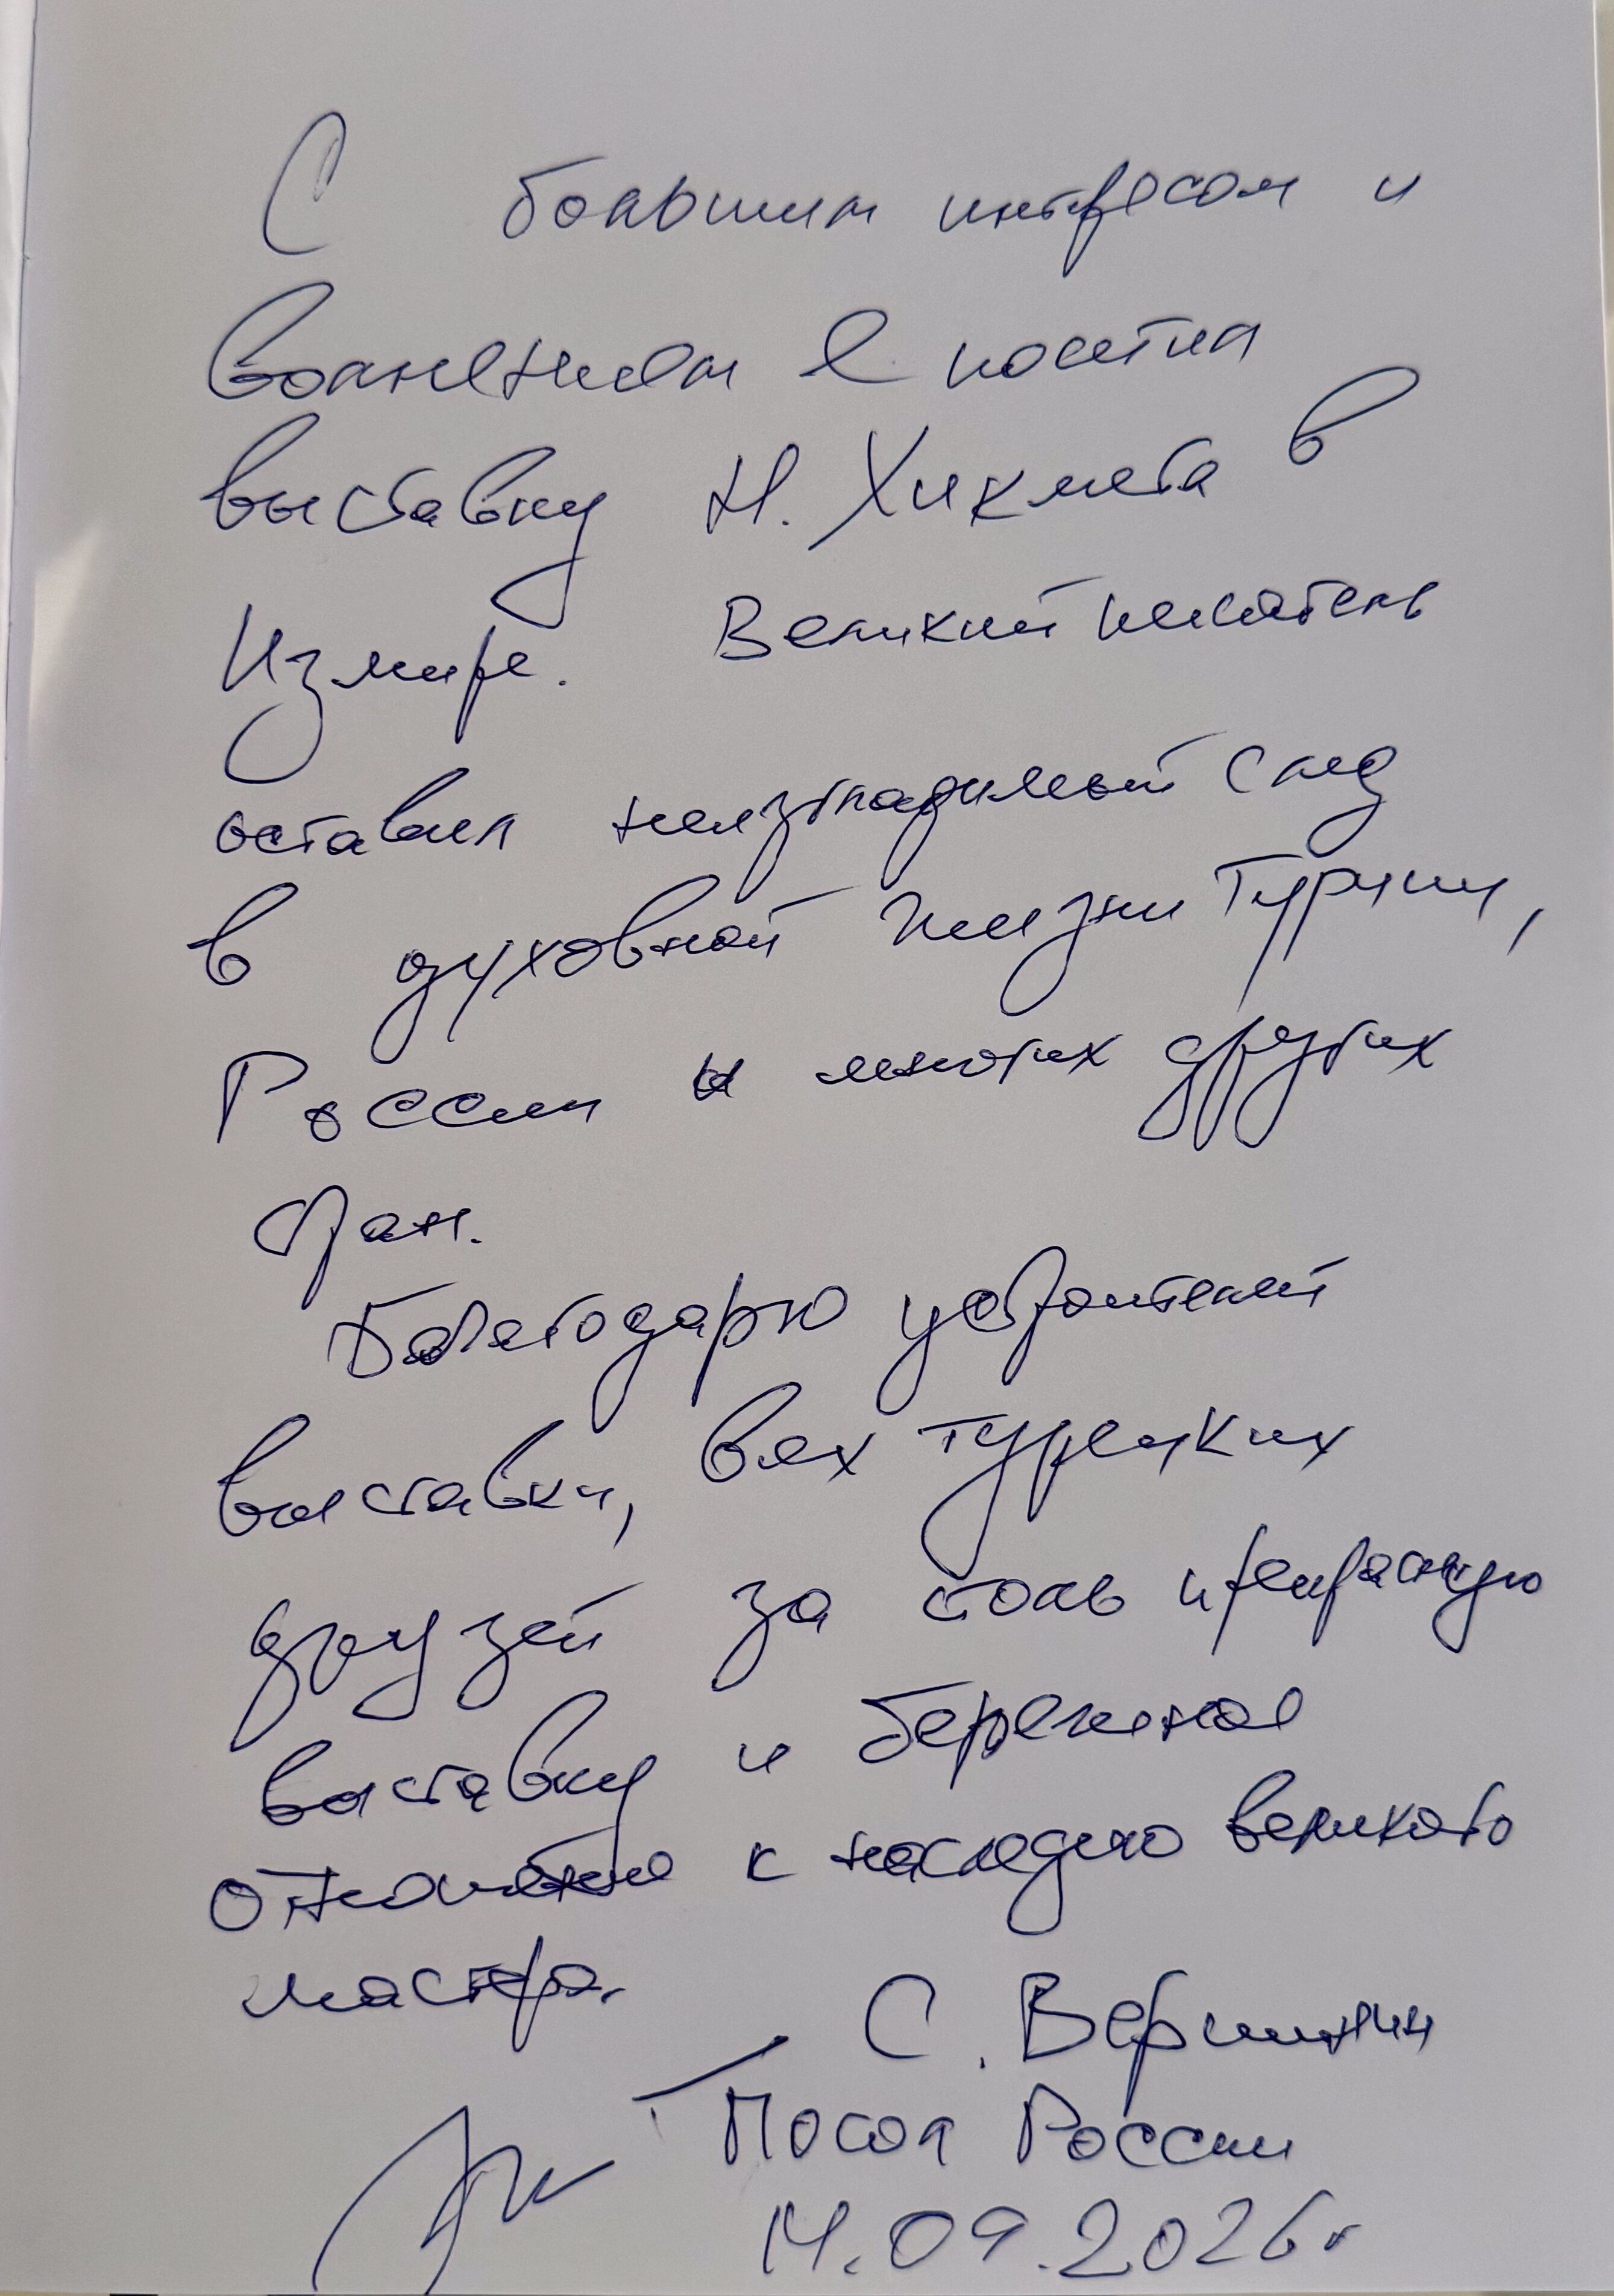 С большим интересом и
волнением я посетил
выставку Н. Хикмета в
Измире. Великий писатель
оставил неизгладимый след
в духовной жизни Турции,
России и многих других
стран.
Благодарю устроителей
выставки, всех турецких
друзей за столь прекрасную
выставку и бережное
отношение к наследию великого
мастера.
С. Вершинин
Посол России
14.09.2026 г